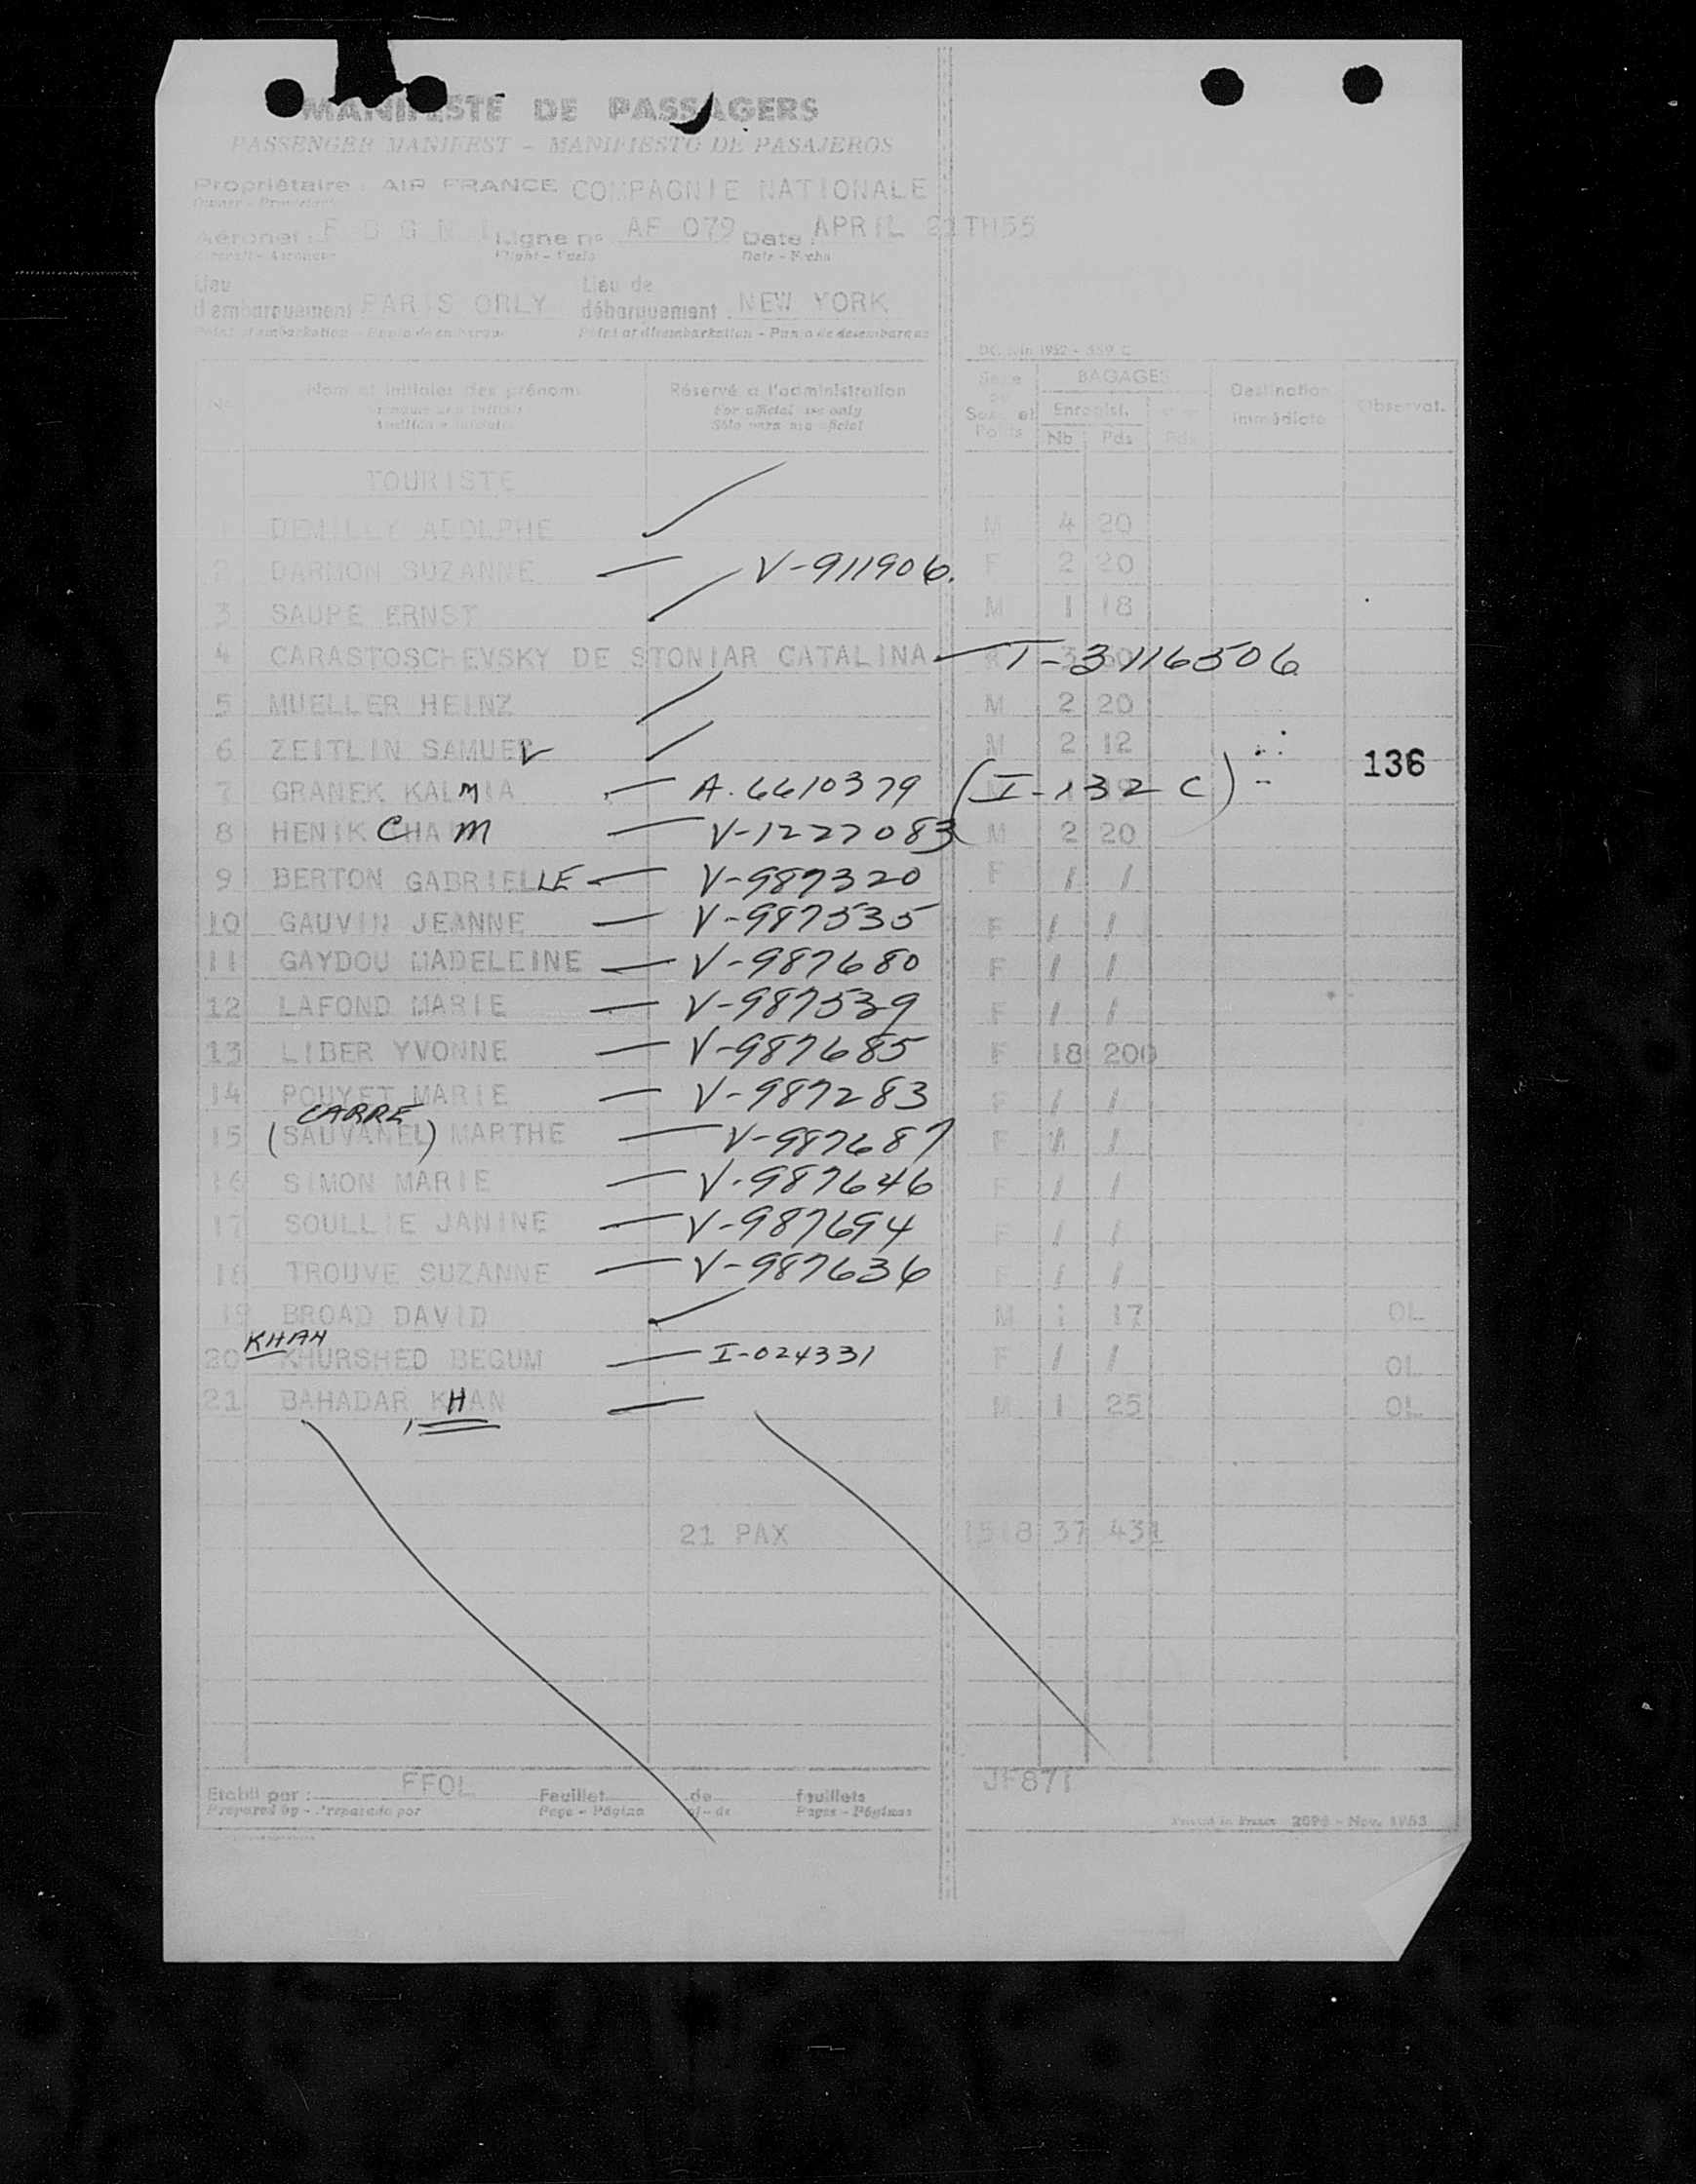 MANIFESTE DE PASSAGERS
PASSENGER MANIFEST - MANIFIESTO DE PASAJEROS
Propriétaire : AIR FRANCE COMPAGNIE NATIONALE
Aéronef : Ligne n° AF 079 Date : APRIL 21TH55
Flight - Date - Fecha
Lieu d'embarquement PARIS ORLY Lieu de débarquement NEW YORK
Point of disembarkation - Punto de desembarque
Nom et initiales des prénoms Réservé à l'administration BAGAGES Destination immédiate Observat.
For official use only Enregist.
Sólo para uso oficial Nb Pds Pds
TOURISTE
DEMILLY ADOLPHE M 4 20
2 DARMON SUZANNE — V-911906. F 2 20
3 SAUPE ERNST M 1 18
4 CARASTOSCHEVSKY DE STONIAR CATALINA — T-3116506
5 MUELLER HEINZ M 2 20
6 ZEITLIN SAMUEL M 2 12
136
7 GRANEK KALMA — A.6610379 (I-132 C)
8 HENIK CHAM — V-1227083 M 2 20
9 BERTON GABRIELLE — V-987320 F / /
10 GAUVIN JEANNE — V-987535 F / /
11 GAYDOU MADELEINE — V-987680 F / /
12 LAFOND MARIE — V-987539 F / /
13 LIBER YVONNE — V-987685 F 18 200
14 POUYET MARIE — V-987283 F / /
CARRE
15 (SAUVANEL) MARTHE — V-987687 F / /
16 SIMON MARIE — V-987646 F / /
17 SOULLIE JANINE — V-987694 F / /
18 TROUVE SUZANNE — V-987636 F / /
19 BROAD DAVID M 1 17 OL
KHAN
20 KHURSHED BEGUM — I-024331 F / / OL
21 BAHADAR KHAN — M 1 25 OL
21 PAX 37 431
Etabli par : FFOL Feuillet de feuillets JF871
Prepared by - Preparado por Page - Página of - de Pages - Páginas Printed in France 2098 - Nov. 1953